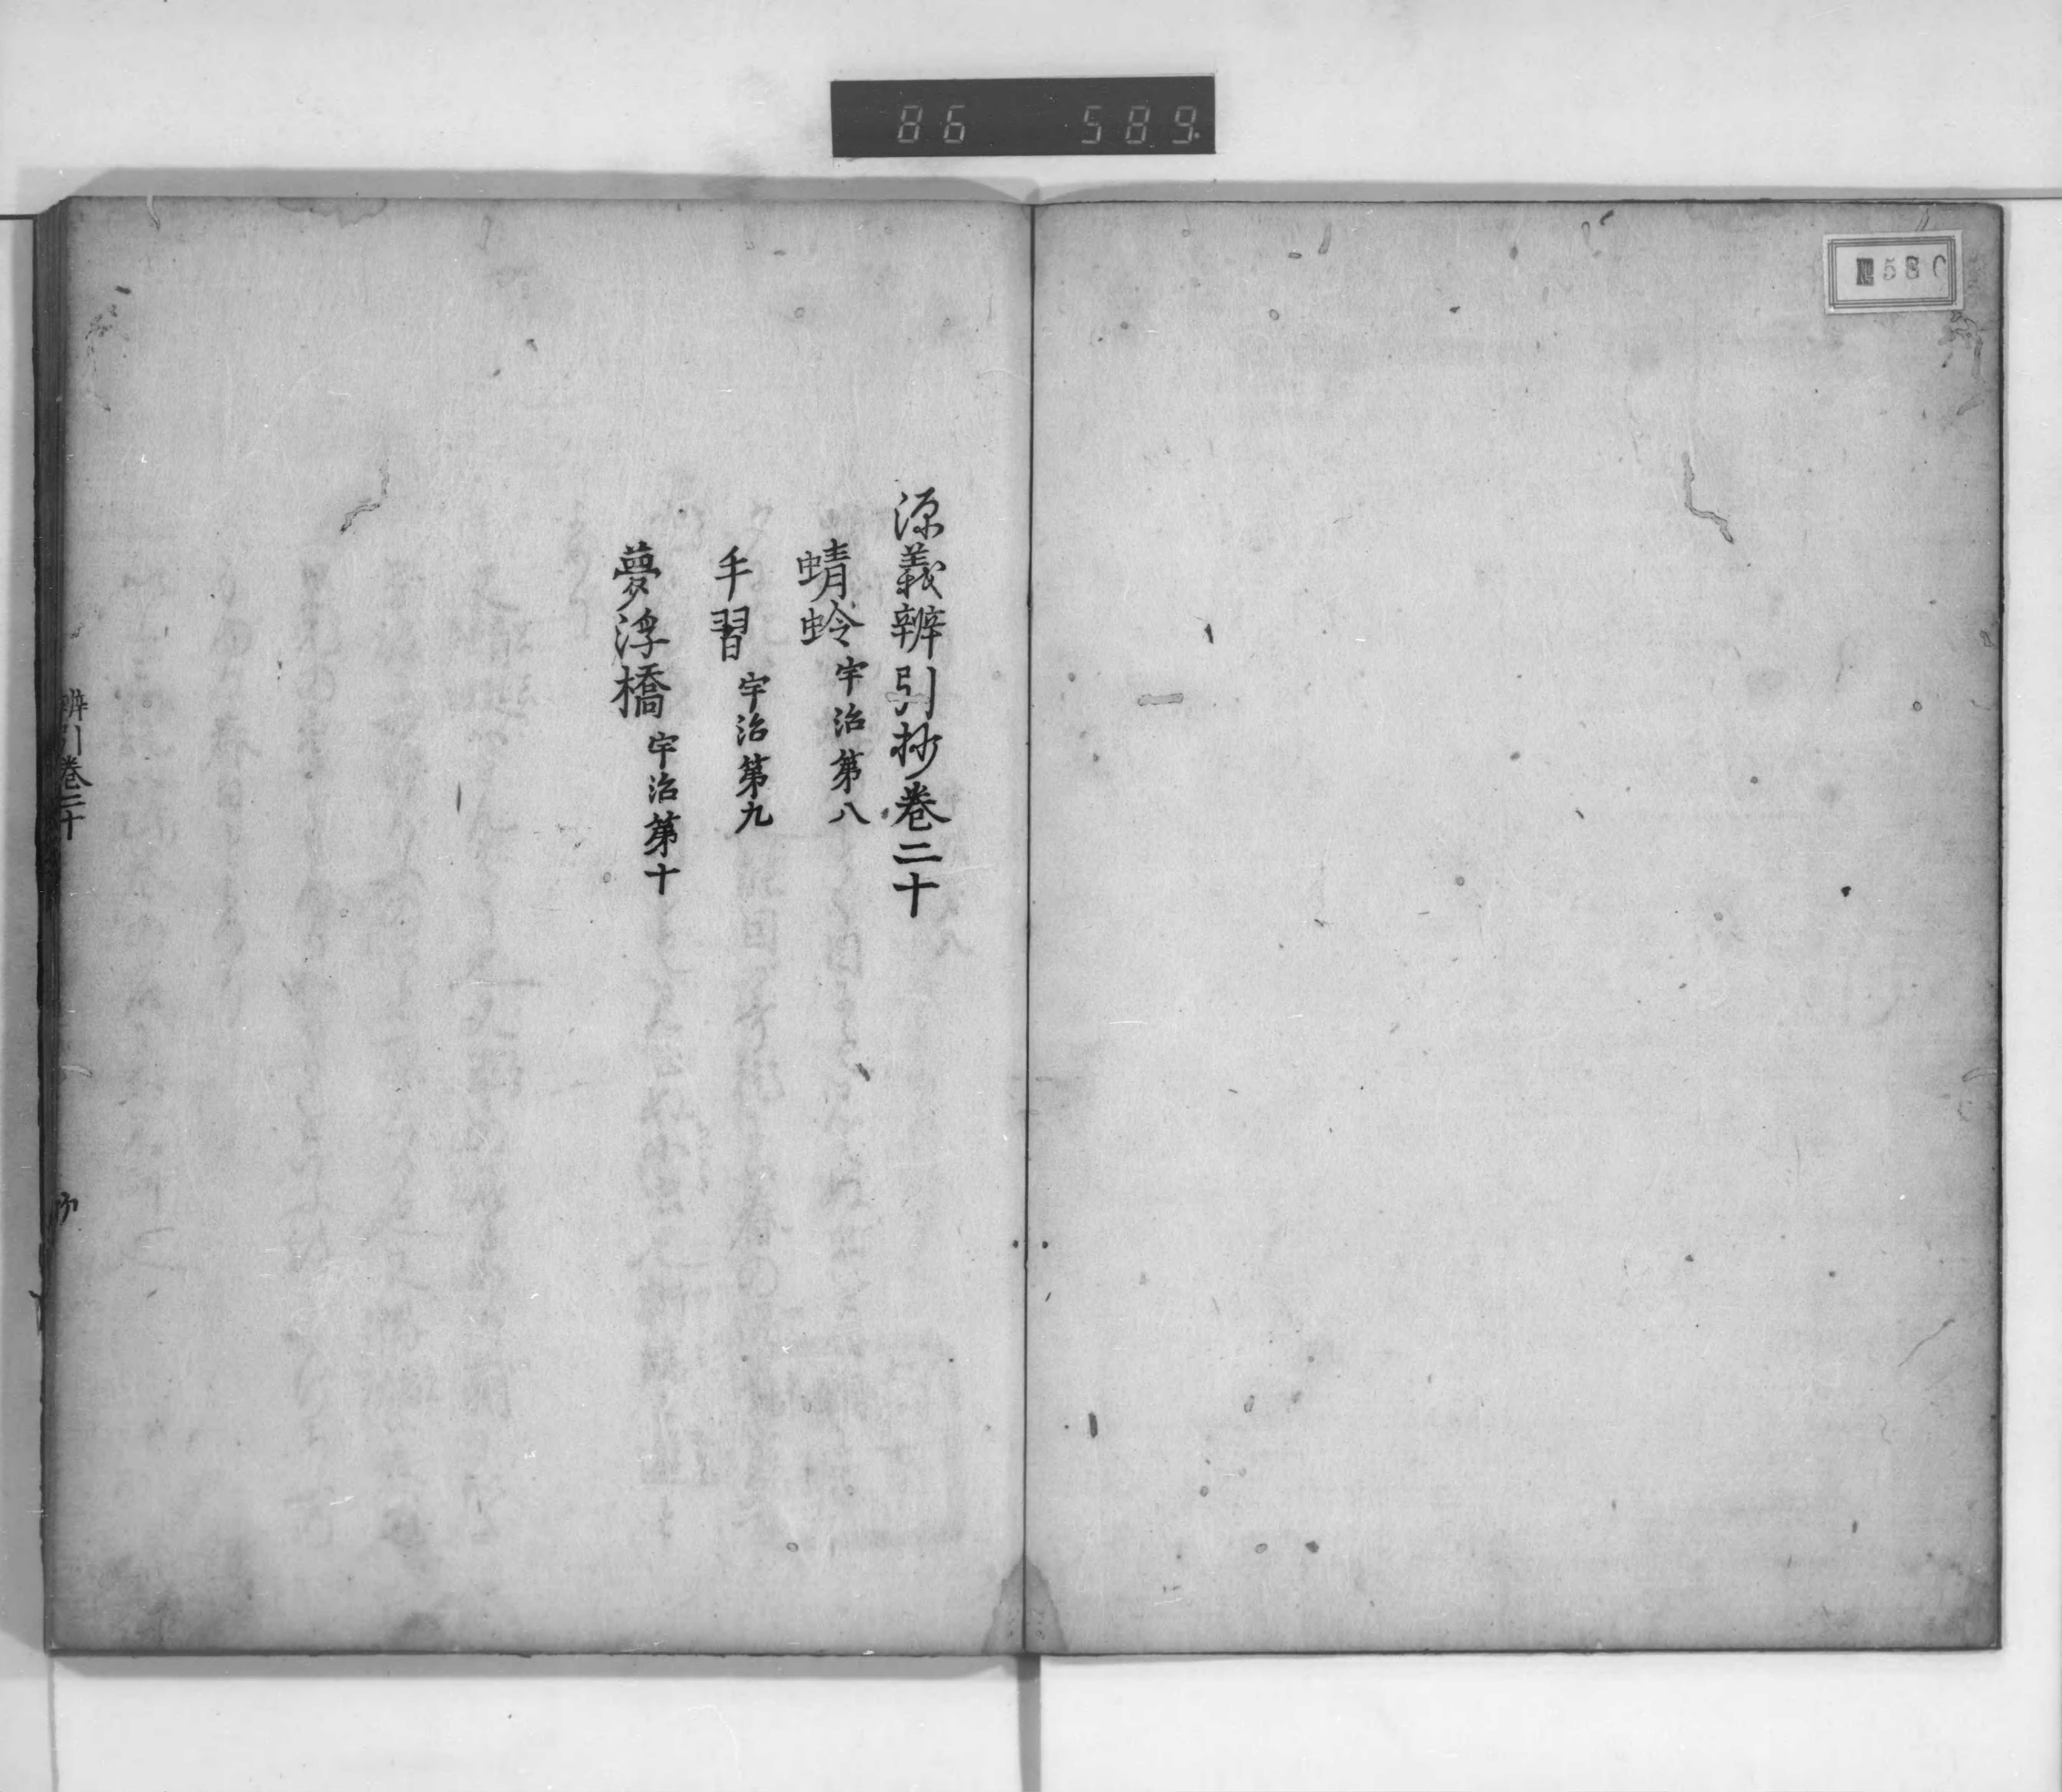 86 589
580
源義辨引抄卷二十
蜻蛉 宇治第八
手習 宇治第九
夢浮橋 宇治第十
辨引卷二十